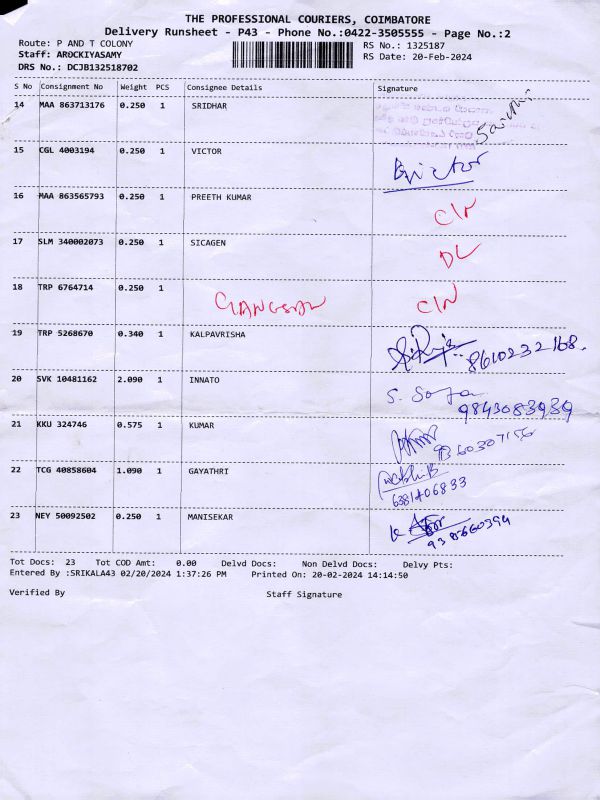 THE PROFESSIONAL COURIERS, COIMBATORE
Delivery Runsheet - P43 - Phone No.:0422-3505555 - Page No.:2
Route: P AND T COLONY
RS No.: 1325187
Staff: AROCKIYASAMY
RS Date: 20-Feb-2024
DRS No.: DCJB132518702
S No Consignment No Weight PCS Consignee Details Signature
14 MAA 863713176 0.250 1 SRIDHAR
15 CGL 4003194 0.250 1 VICTOR Victor
16 MAA 863565793 0.250 1 PREETH KUMAR CIN
17 SLM 340002073 0.250 1 SICAGEN DL
18 TRP 6764714 0.250 1 CIN
19 TRP 5268670 0.340 1 KALPAVRISHA 8610232168.
20 SVK 10481162 2.090 1 INNATO S.
9843083989
21 KKU 324746 0.575 1 KUMAR
9360307156
22 TCG 40858604 1.090 1 GAYATHRI
6381406833
23 NEY 50092502 0.250 1 MANISEKAR
Tot Docs: 23 Tot COD Amt: 0.00 Delvd Docs: Non Delvd Docs: Delvy Pts:
Entered By :SRIKALA43 02/20/2024 1:37:26 PM Printed On: 20-02-2024 14:14:50
Verified By Staff Signature